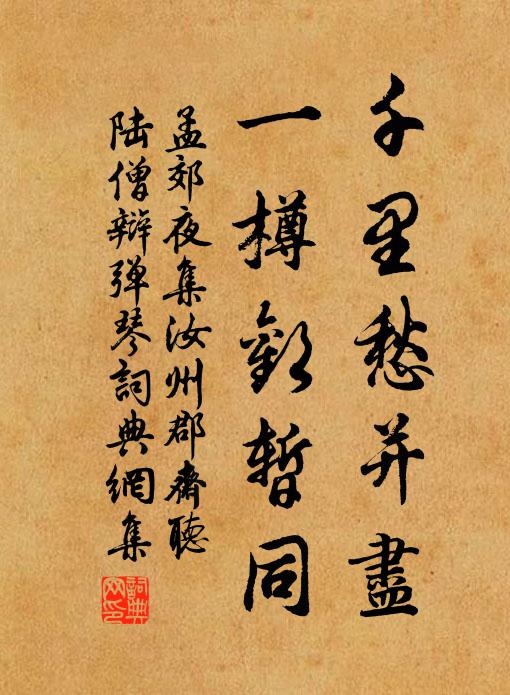 千里愁并盡
一樽歡暫同
孟郊夜集汝州郡齋聽
陸僧辯弹琴詞典網集
詞典网印